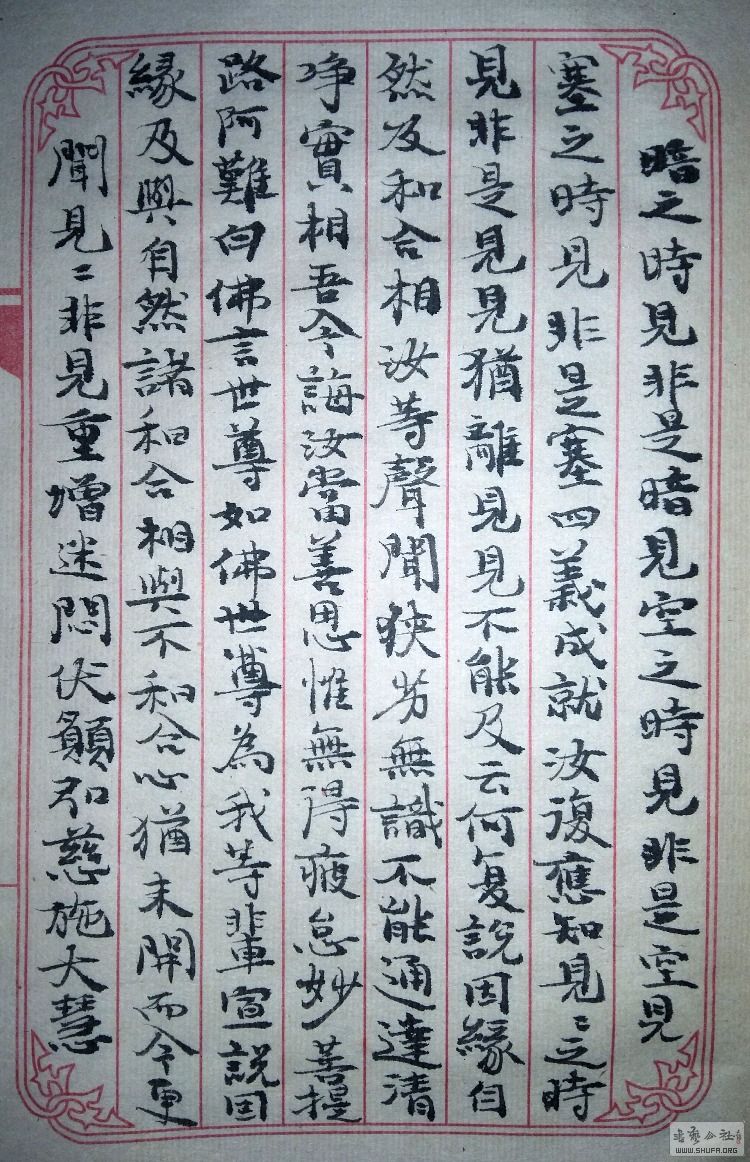 暗之時見非是暗見空之時見非是空見
塞之時見非是塞四義成就汝復應知見〻之時
見非是見見猶離見見不能及云何复說因緣自
然及和合相汝等聲聞狹劣無識不能通達清
净實相吾今誨汝當善思惟無得疲怠妙菩提
路阿難白佛言世尊如佛世尊為我等輩宣說因
緣及與自然諸和合相與不和合心猶未開而今更
聞見〻非見重增迷悶伏願弘慈施大慧
WWW.SHUFA.ORG